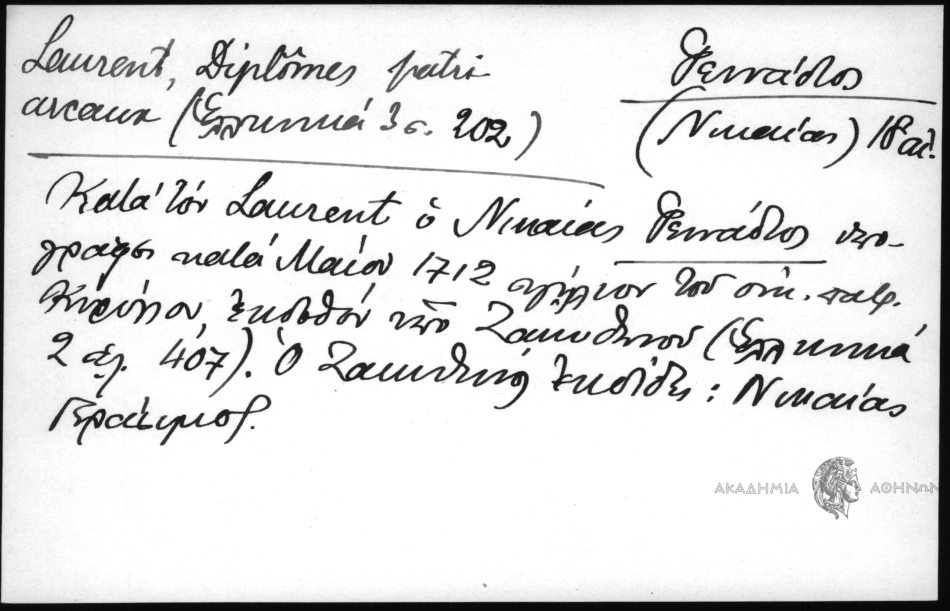 Laurent, Diplômes patri
arcaux (Ἑλληνικά 3 σ. 202)
Γεννάδιος
(Νικαίας) 18 αἰ.
Κατὰ τὸν Laurent ὁ Νικαίας Γεννάδιος ὑπο-
γράφει κατὰ Μάϊον 1712 σιγίλλιον τοῦ οἰκ. πατρ.
Κυρίλλου ἐκδοθὲν ὑπὸ Ζακυθηνοῦ (Ἑλληνικά
2 σελ. 407). Ὁ Ζακυθηνὸς ἐκδίδει: Νικαίας
Γεράσιμος.
ΑΚΑΔΗΜΙΑ ΑΘΗΝΩΝ